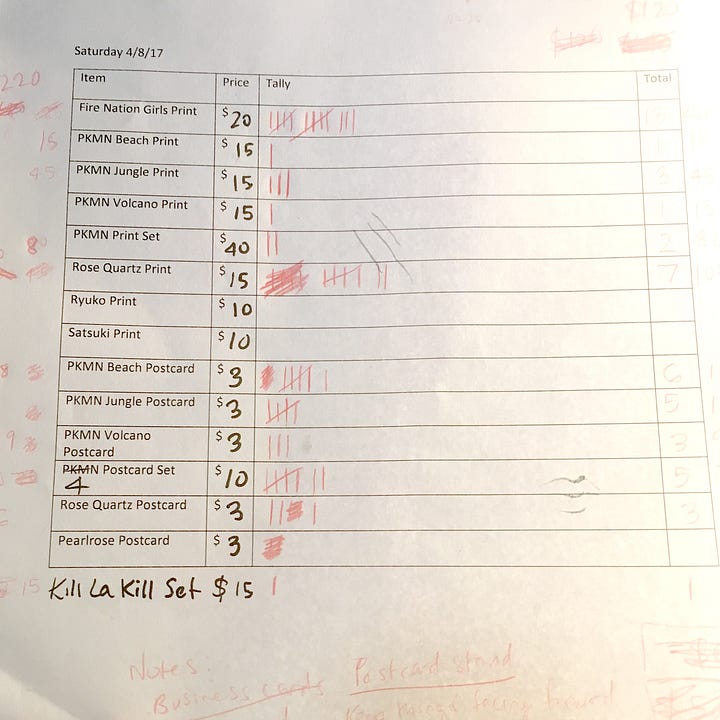 $12
Saturday 4/8/17
Item Price Tally Total
220
Fire Nation Girls Print $20
15 PKMN Beach Print $15 1
45 PKMN Jungle Print $15 3
PKMN Volcano Print $15 1
80 PKMN Print Set $40 2
Rose Quartz Print $15 7
Ryuko Print $10
Satsuki Print $10
PKMN Beach Postcard $3 6
PKMN Jungle Postcard $3 5
9 PKMN Volcano $3 3
Postcard
PKMN Postcard Set $10 5
4
Rose Quartz Postcard $3 3
Pearlrose Postcard $3
15 Kill La Kill Set $15 1
Notes
Business cards Postcard stand
facing forward